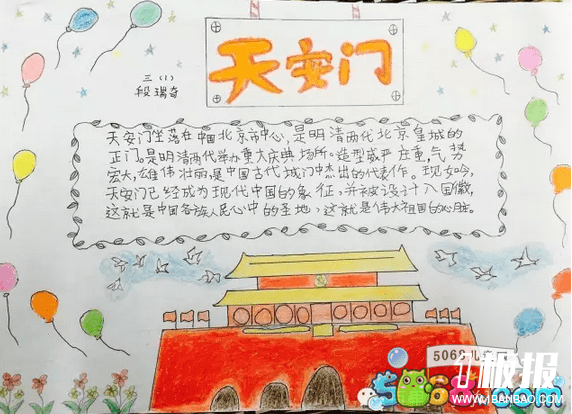 天安门
三(1)
段瑞奇
天安门坐落在中国北京市中心,是明清两代北京皇城的
正门。是明清两代举办重大庆典场所。造型威严庄重,气势
宏大,雄伟壮丽,是中国古代城门中杰出的代表作。现如今,
天安门已经成为现代中国的象征,并被设计入国徽,
这就是中国各族人民心中的圣地,这就是伟大祖国的心脏。
5068儿
板报
5068.com
WWW.1BANBAO.COM